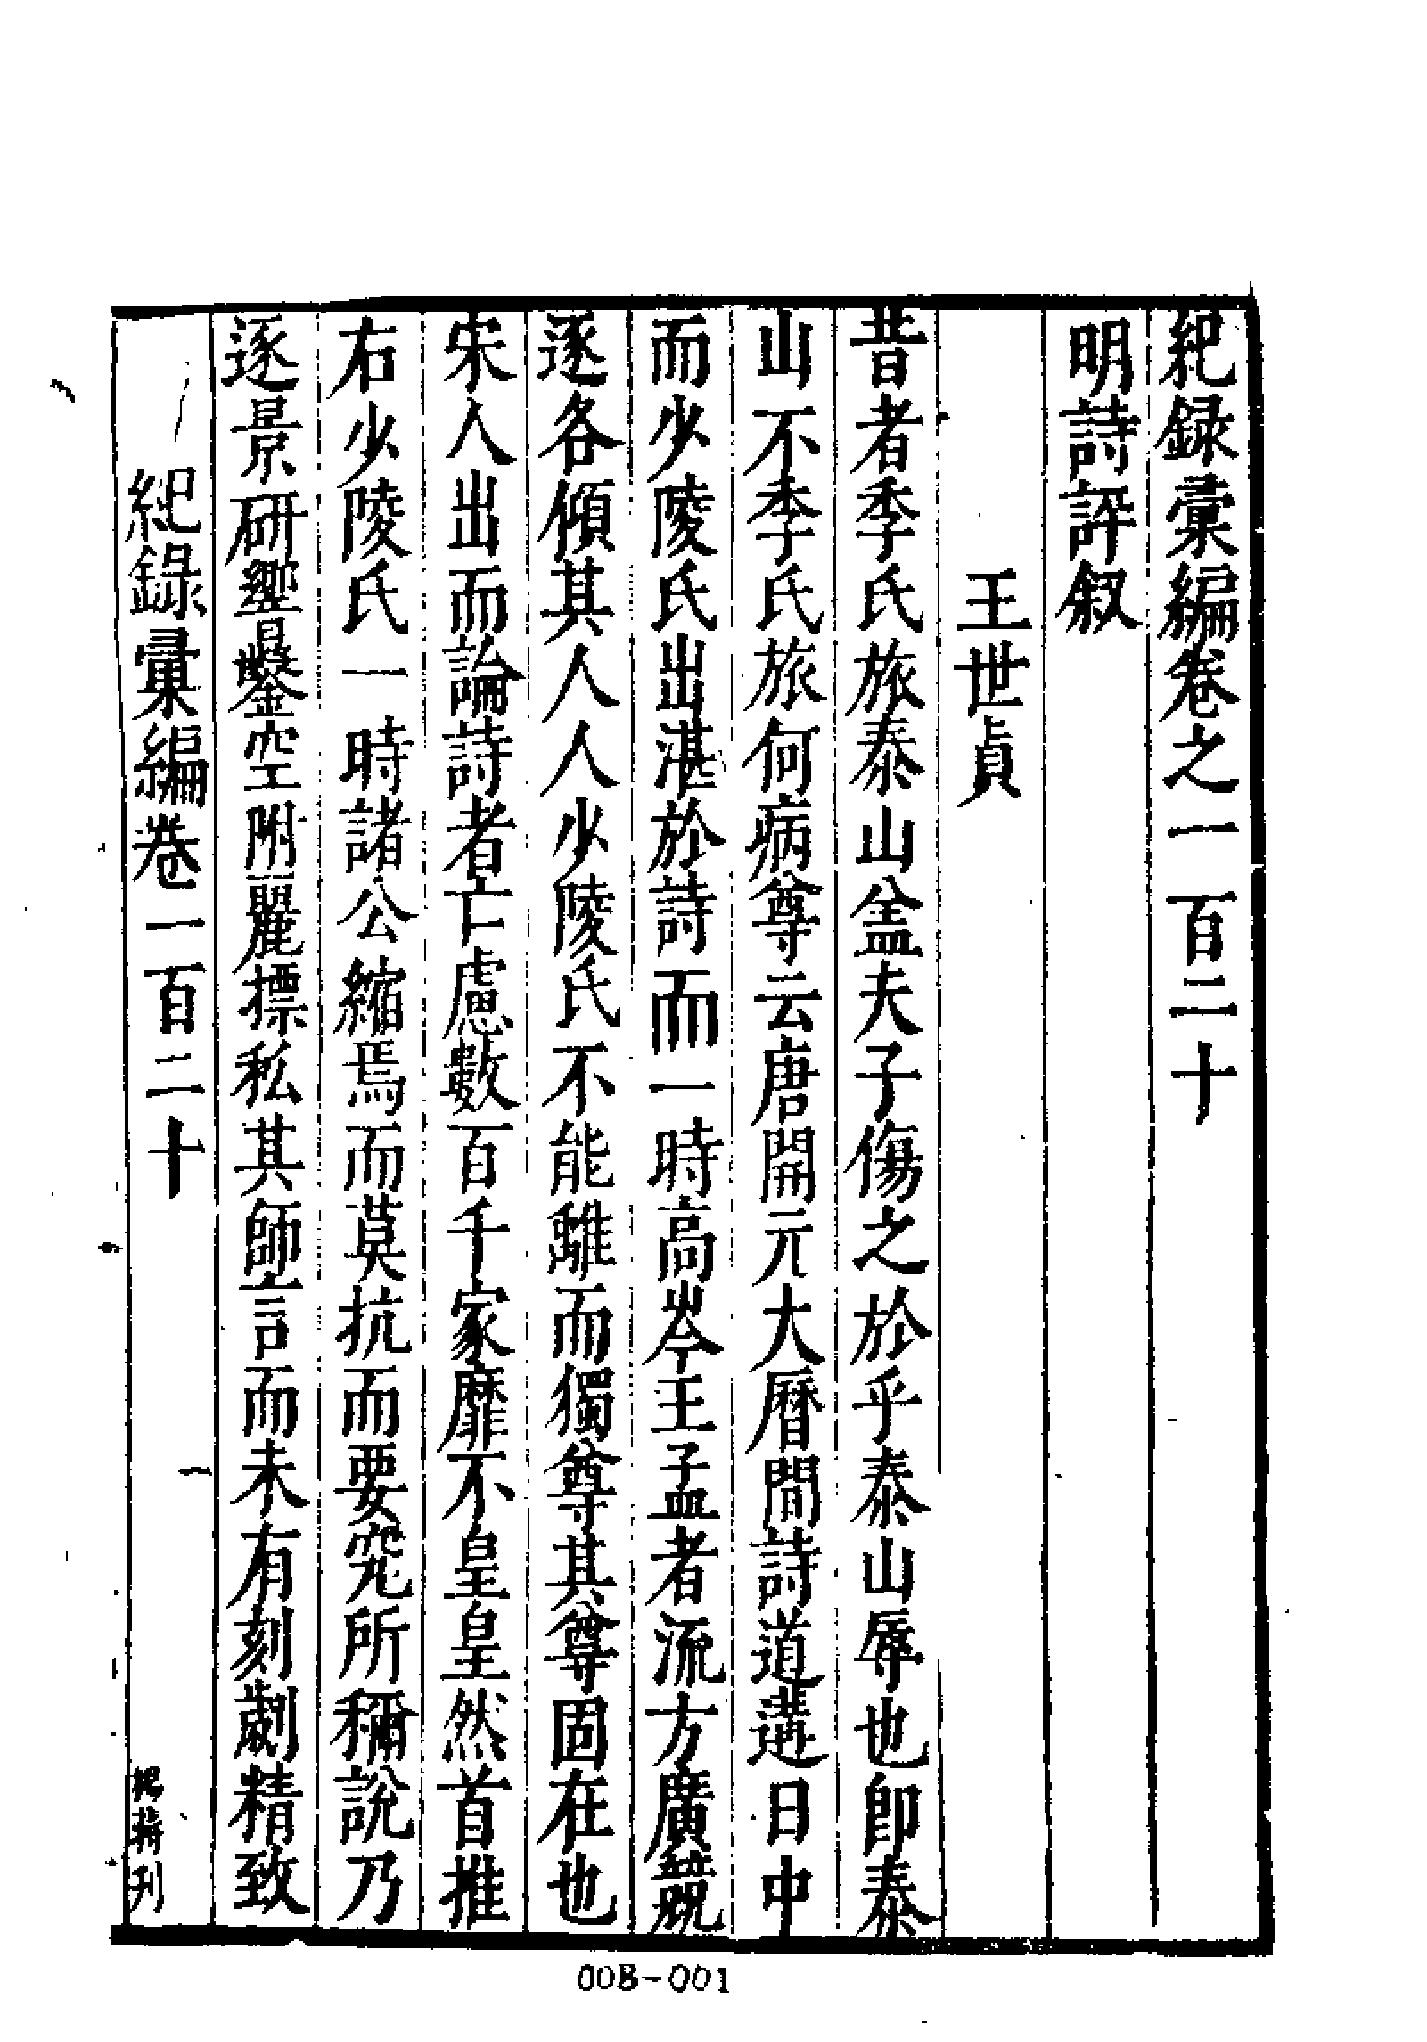 紀録彙編卷之一百二十
明詩評叙
王世貞
昔者季氏旅泰山盖夫子傷之於乎泰山辱也即泰
山不季氏旅何病尊云唐開元大曆間詩道遘日中
而少陵氏出湛於詩而一時高岑王孟者流方廣競
逐各傾其人人少陵氏不能雖而獨尊其尊固在也
宋人出而論詩者亡慮數百千家靡不皇皇然首推
右少陵氏一時諸公縮焉而莫抗而要究所稱說乃
逐景研響鑿空附麗摽私其師言而未有刻劌精致
紀錄彙編卷一百二十
一
刊
008-001